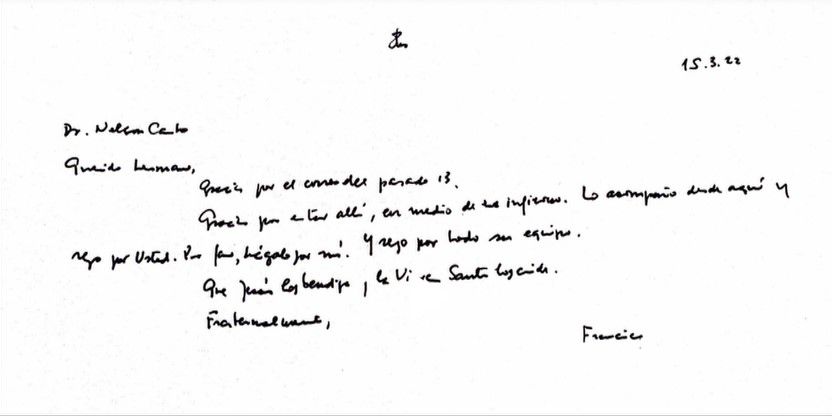 15.3.22
Dr. Nelson Castro
Querido hermano,
Gracias por el correo del pasado 13.
Gracias por estar allí, en medio de ese infierno. Lo acompaño desde aquí y
rezo por Usted. Por favor, hágalo por mí. Y rezo por todo su equipo.
Que Jesús los bendiga y la Virgen Santa los cuide.
Fraternalmente,
Francisco